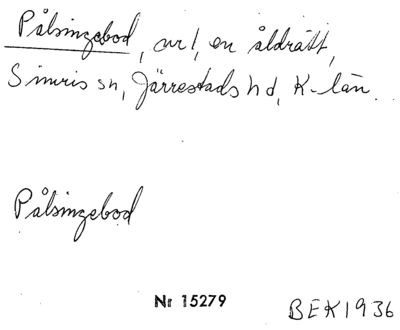 Pålsingebod, nr 1, en åldrätt,
Simris sn, Järrestads hd, K-län.
Pålsingebod
Nr 15279
BEK1936